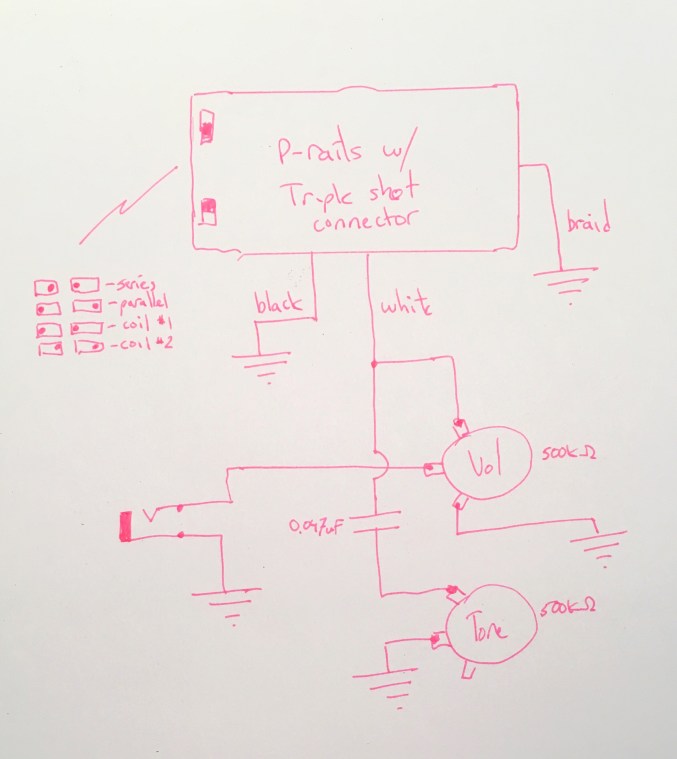 P-rails w/
Triple shot
connector
braid
black
white
- series
- parallel
- coil #1
- coil #2
Vol
500kΩ
0.047uF
Tone
500kΩ